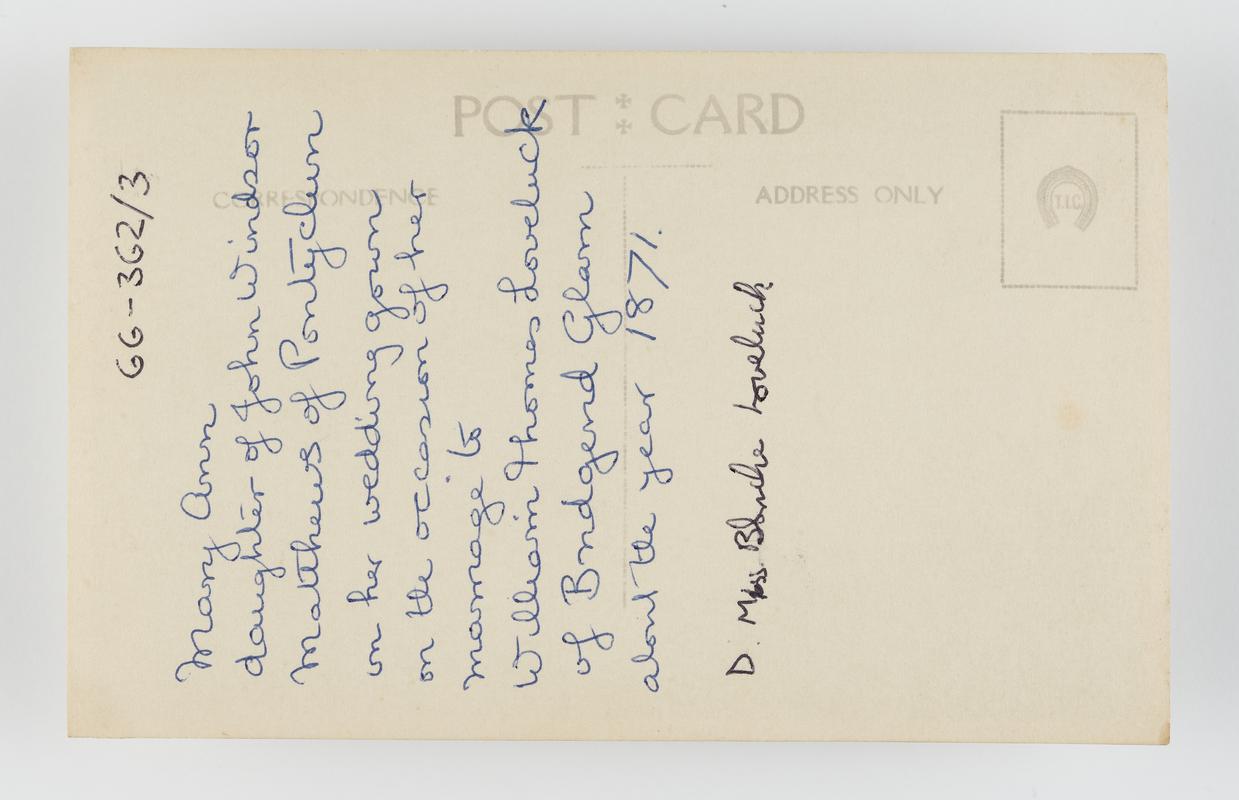 POST CARD
CORRESPONDENCE
ADDRESS ONLY
T.I.C.
66-362/3
Mary Ann
daughter of John Windsor
Matthews of Pontyclun
in her wedding gown
on the occasion of her
marriage to
William Thomas Loveluck
of Bridgend Glam
about the year 1871.
D. Miss Blanche Loveluck